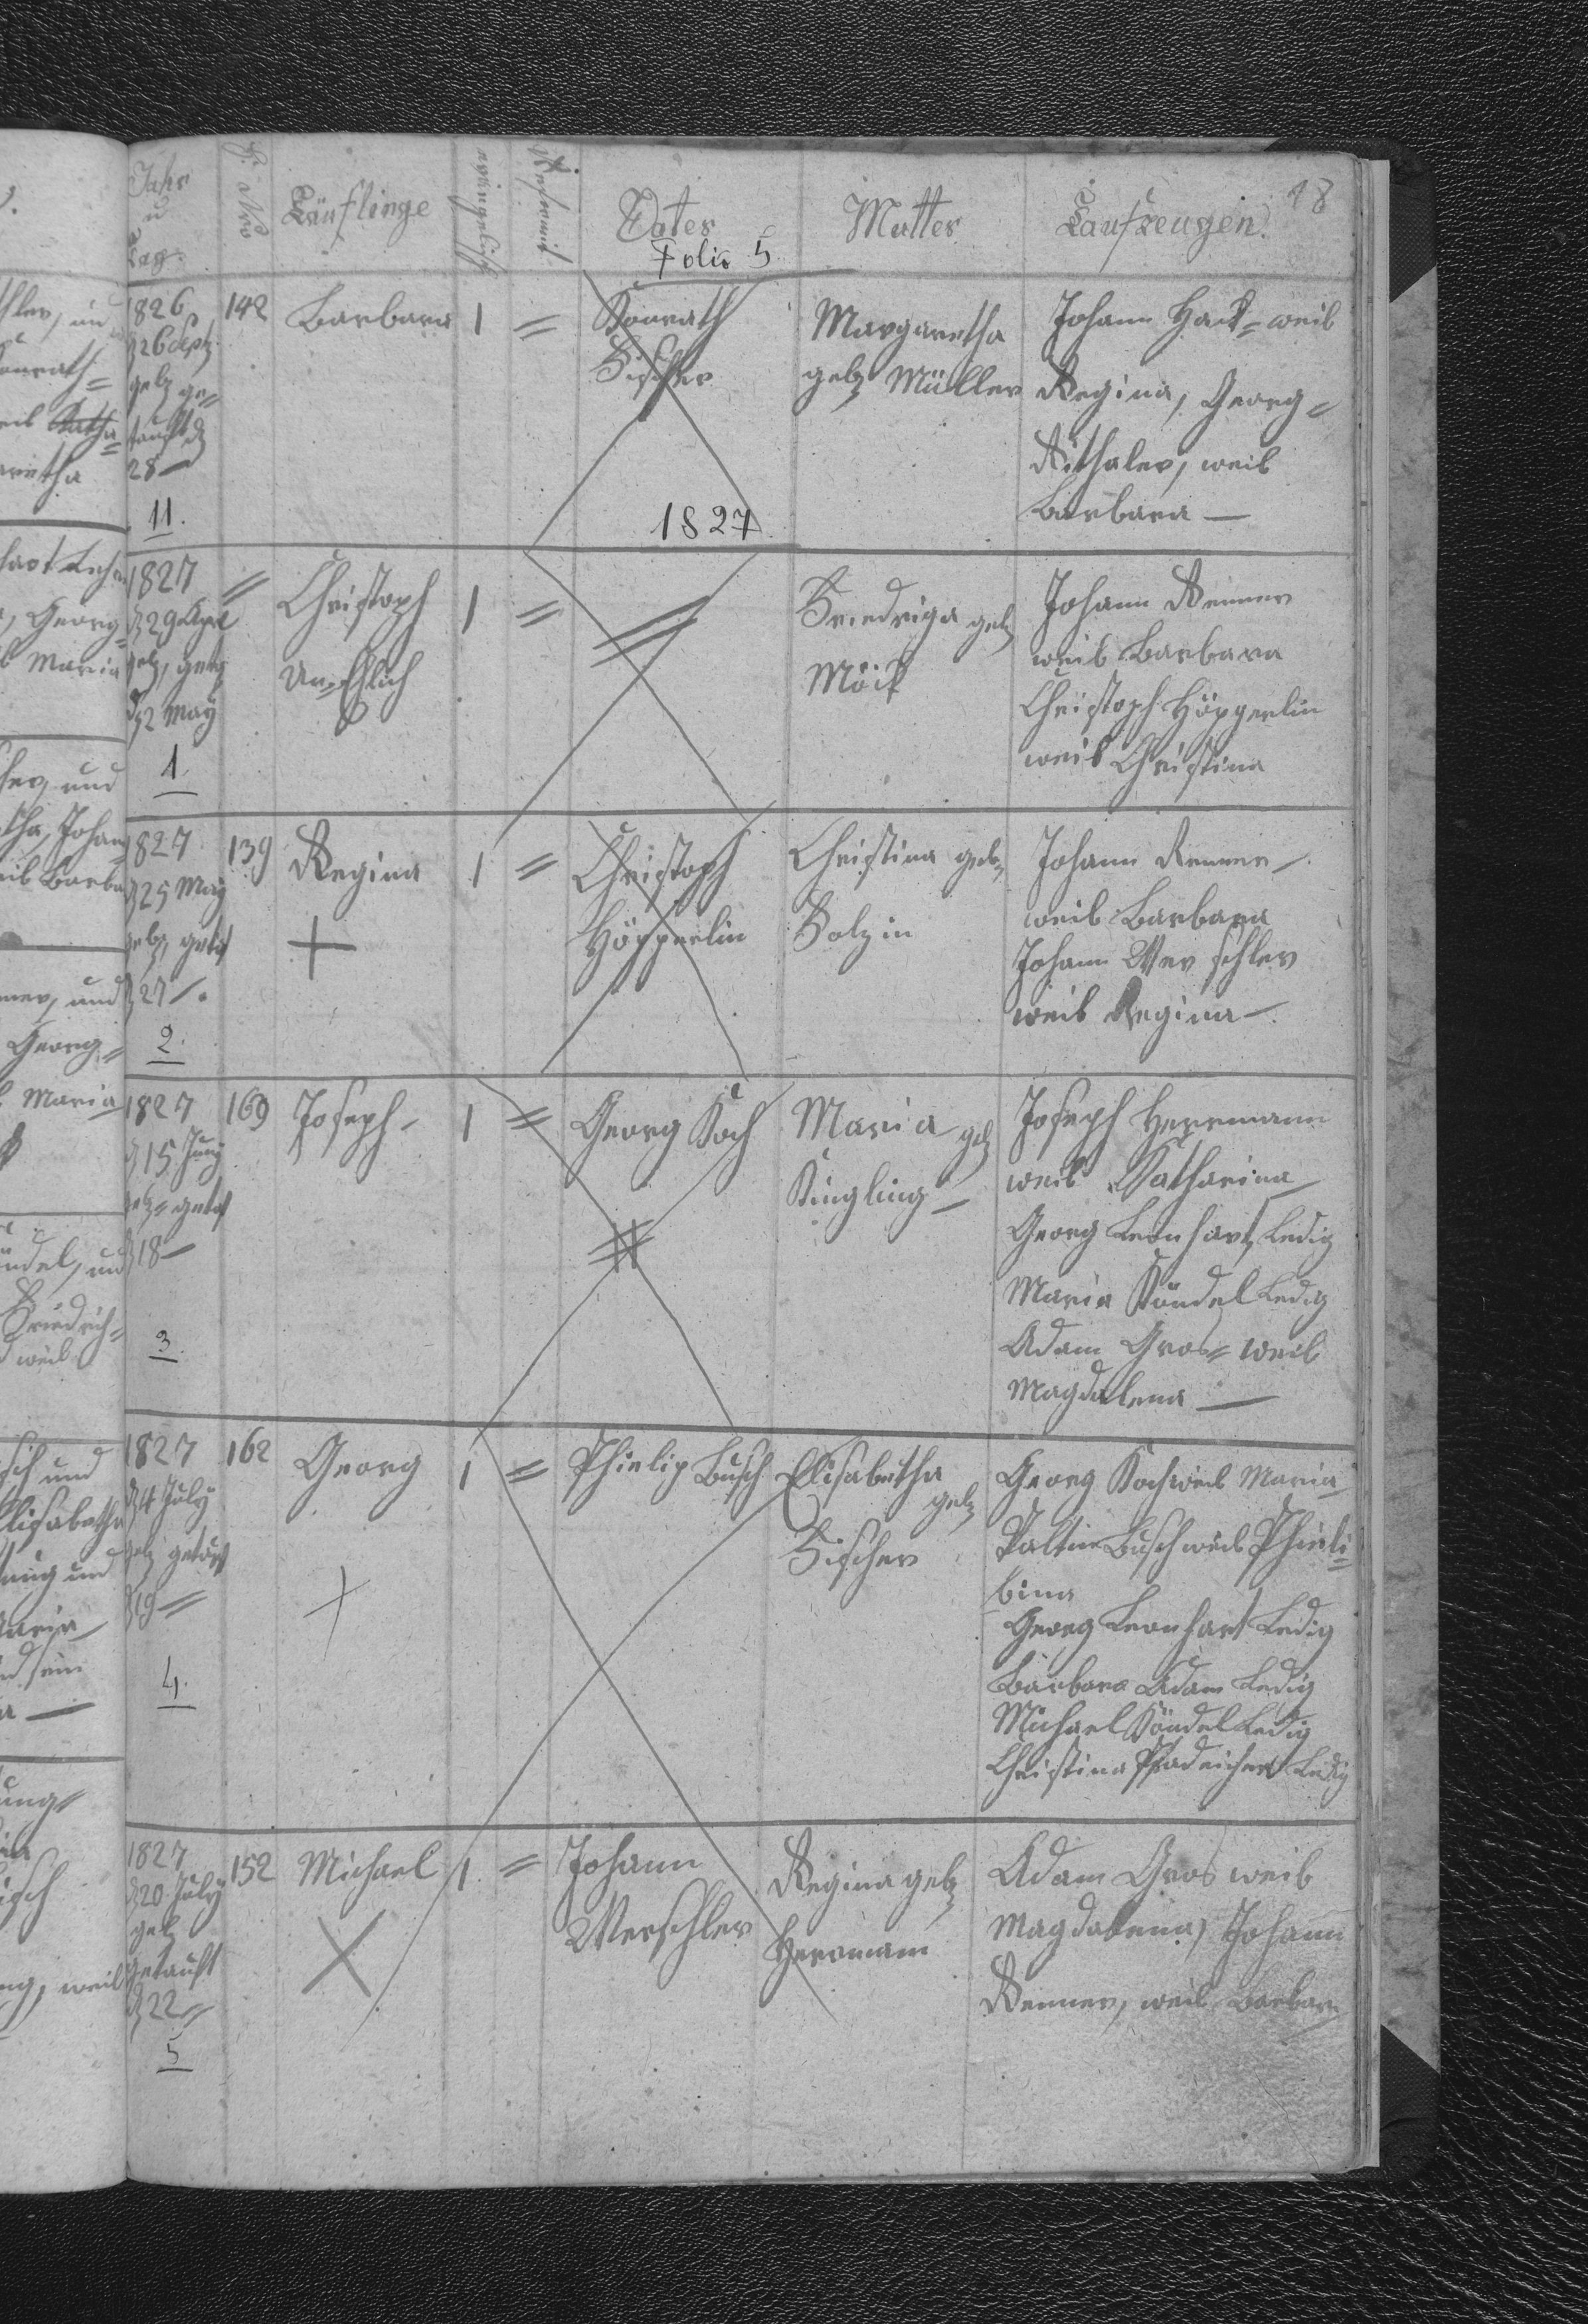 18
Jahr
u
Tag.
H. Nro
Täuflinge
evangelisch
Reformit
Vater
Mutter
Taufzeugen.
Folio 5
1826
d 26 Sept
geb, ge=
tauft d
28 —
11.
142
Barbara
1
=
Konrath
Fischer
Margaretha
geb Müller
Johann Hack= weib
Regina, Georg=
Rithaler, weib
Barbara —
1827
1827
d 29 Apl
geb, get
d 2 May
1.
=
Christoph
Un=Ehlich
1
=
=
Friedriga geb
Möik
Johann Renner
weib Barbara
Christoph Höpperlin
weib Christina
1827
d 25 May
geb, getft
d 27 /.
2.
139
Regina
+
1
=
Christoph
Höpperlin
Christina geb,
Bolzin
Johann Renner
weib Barbara
Johann Werschler
weib Regina —
1827
d 15 Juny
geb= getft
d 18 —
3.
169
Joseph -
1
=
Georg Koch
Maria geb
Kingling —
Joseph Herrmann
weib Katharina
Georg Leonhart, Ledig
Maria Köndel Ledig
Adam Gros= weib
Magdalena —
1827
d 4 July
geb getauft
d 19 =
4.
162
Georg
+
1
=
Phielip Busch
Elisabetha
geb
Fischer
Georg Koch weib Maria
Valtin Busch weib Phieli=
bina
Georg Leonhart Ledig
Barbara Adam Ledig
Michael Köndel Ledig
Christina Pfadeicher Ledig
1827
d 20 July
geb
getauft
d 22 =
5
152
Michael
X
1.
=
Johann
Werschler
Regina geb
Herrmann
Adam Gros weib
Magdalena, Johann
Renner, weib Barbara